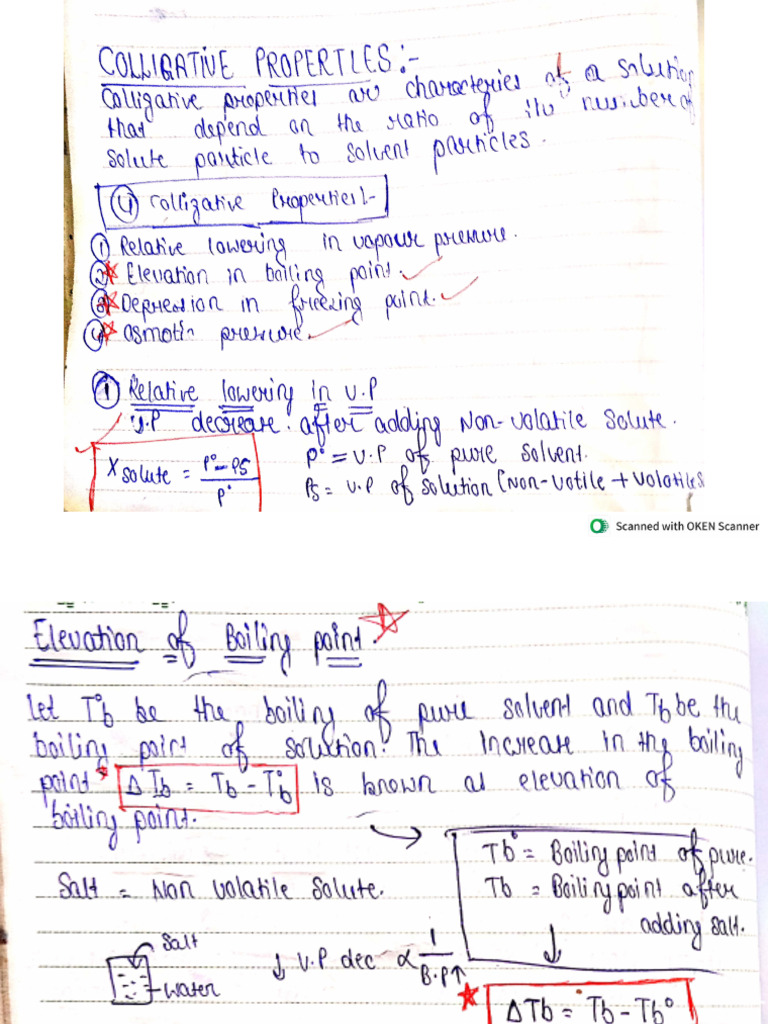 COLLIGATIVE PROPERTIES:-
Colligative properties are characteries of a solution
that depend on the ratio of its number of
solute particle to solvent particles.
④ Colligative Properties:-
① Relative lowering in vapour pressure.
② Elevation in boiling point.
③ Depression in freezing point.
④ Osmotic pressure.
① Relative lowering in V.P
V.P decrease after adding Non-volatile solute.
X solute = P° - Ps / P°
P° = V.P of pure solvent.
Ps = V.P of solution (Non-votile + volatiles
Scanned with OKEN Scanner
Elevation of Boiling point.
Let T°b be the boiling of pure solvent and Tb be the
boiling point of solution. The increase in the boiling
point ΔTb = Tb - T°b is known as elevation of
boiling point.
Tb° = Boiling point of pure.
Tb = Boiling point after
adding salt.
Salt = Non volatile solute.
Salt
water
↓ V.P dec ∝ 1 / B.P↑
ΔTb = Tb - Tb°